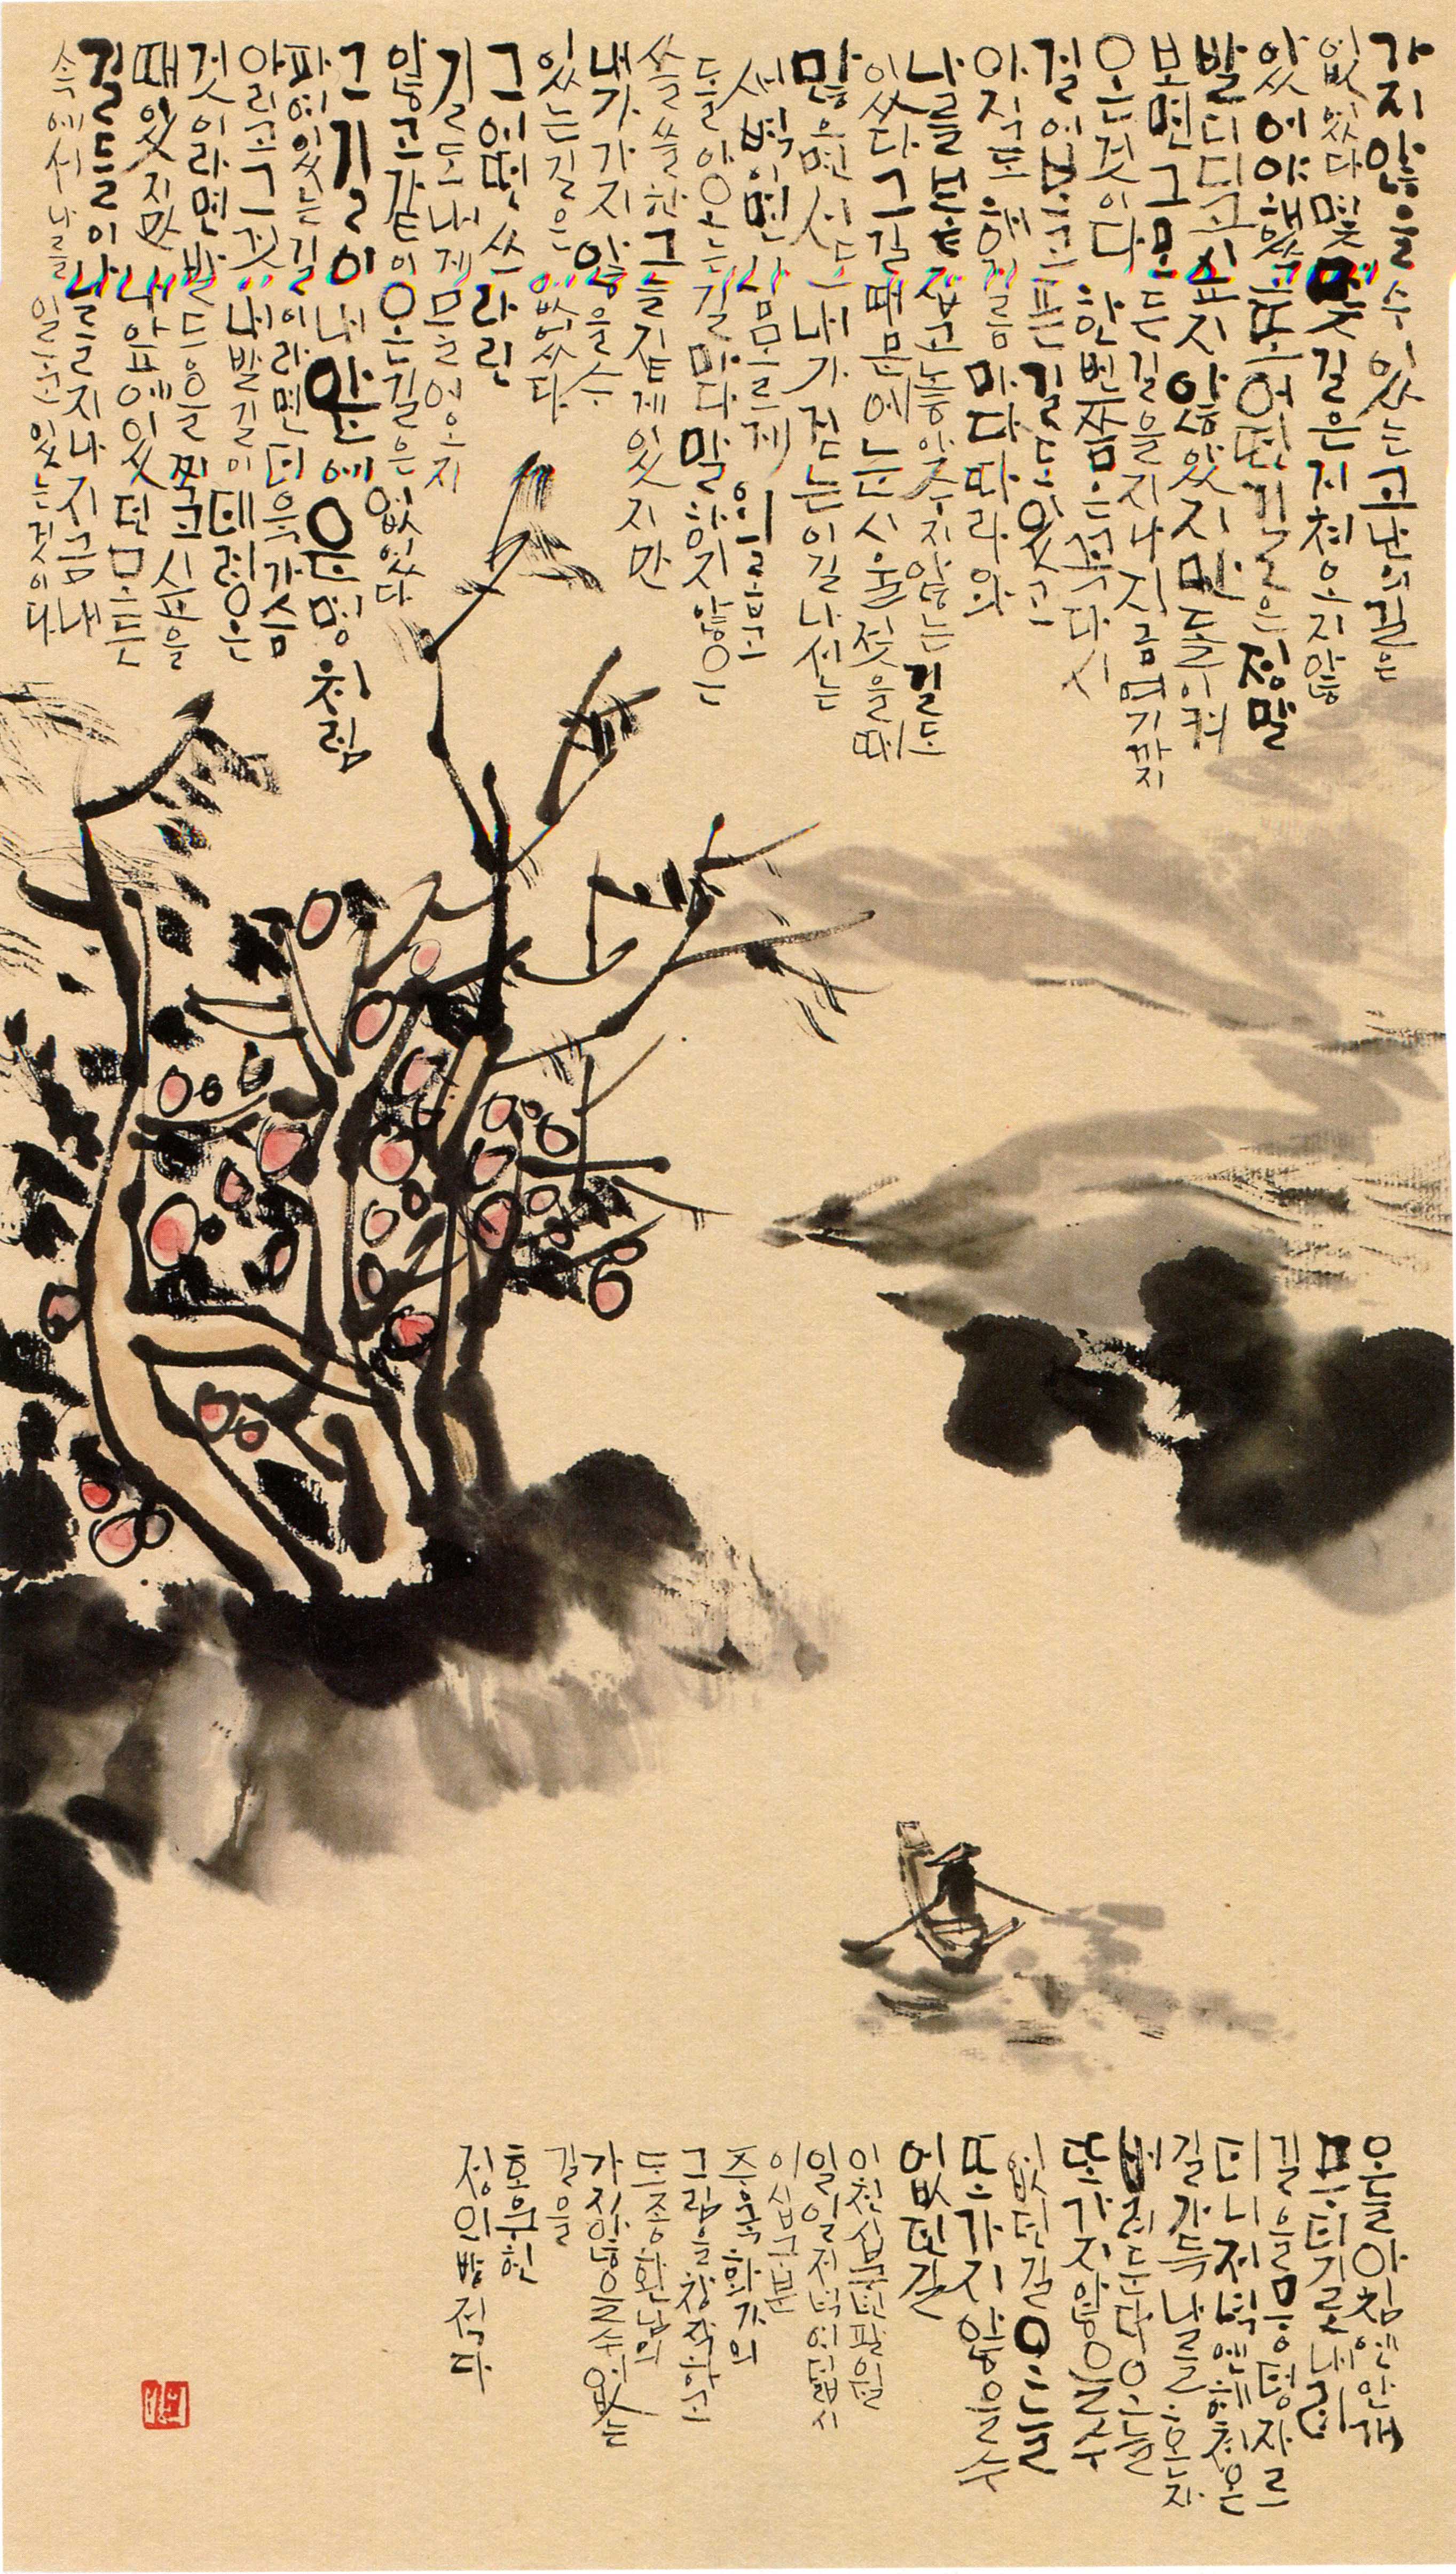 가지 않을 수 있는 고난의 길은
없었다 몇몇 길은 거쳐오지 않
았어야 했고 또 어떤 길은 정말
발 디디고 싶지 않았지만 돌이켜
보면 그 모든 길을 지나 지금 여기까지
온 것이다 한번쯤은 꼭 다시
걸어보고픈 길도 있고
아직도 해거름마다 따라와
나를 붙잡고 놓아주지 않는 길도
있다 그 길 때문에 눈시울 젖을 때
많으면서도 내가 걷는 이 길 나서는
새벽이면 남모르게 외롭고
돌아오는 길마다 말하지 않은
쓸쓸한 그늘 짙게 있지만
내가 가지 않을 수
있는 길은 없었다
그 어떤 쓰라린
길도 내게 물어오지
않고 같이 온 길은 없었다
그 길이 내 앞에 운명처럼
파여 있는 길이라면 더욱 가슴
아리고 그것이 내 발길이 데려온
것이라면 발등을 찍고 싶을
때 있지만 내 앞에 있던 모든
길들이 나를 지나 지금 내
속에서 나를 이루고 있는 것이다
오늘 아침엔 안개
무더기로 내려
길을 뭉텅 자르
더니 저녁엔 헤쳐온
길 가득 나를 혼자
버려둔다 오늘
또 가지 않을 수
없던 길 오늘
또 가지 않을 수
없던 길
팔월
일일 저녁 여덟시
이십구분
화가의
그림을 창작하고
도종환님의
가지 않을 수 없는
길을
정인방 적다